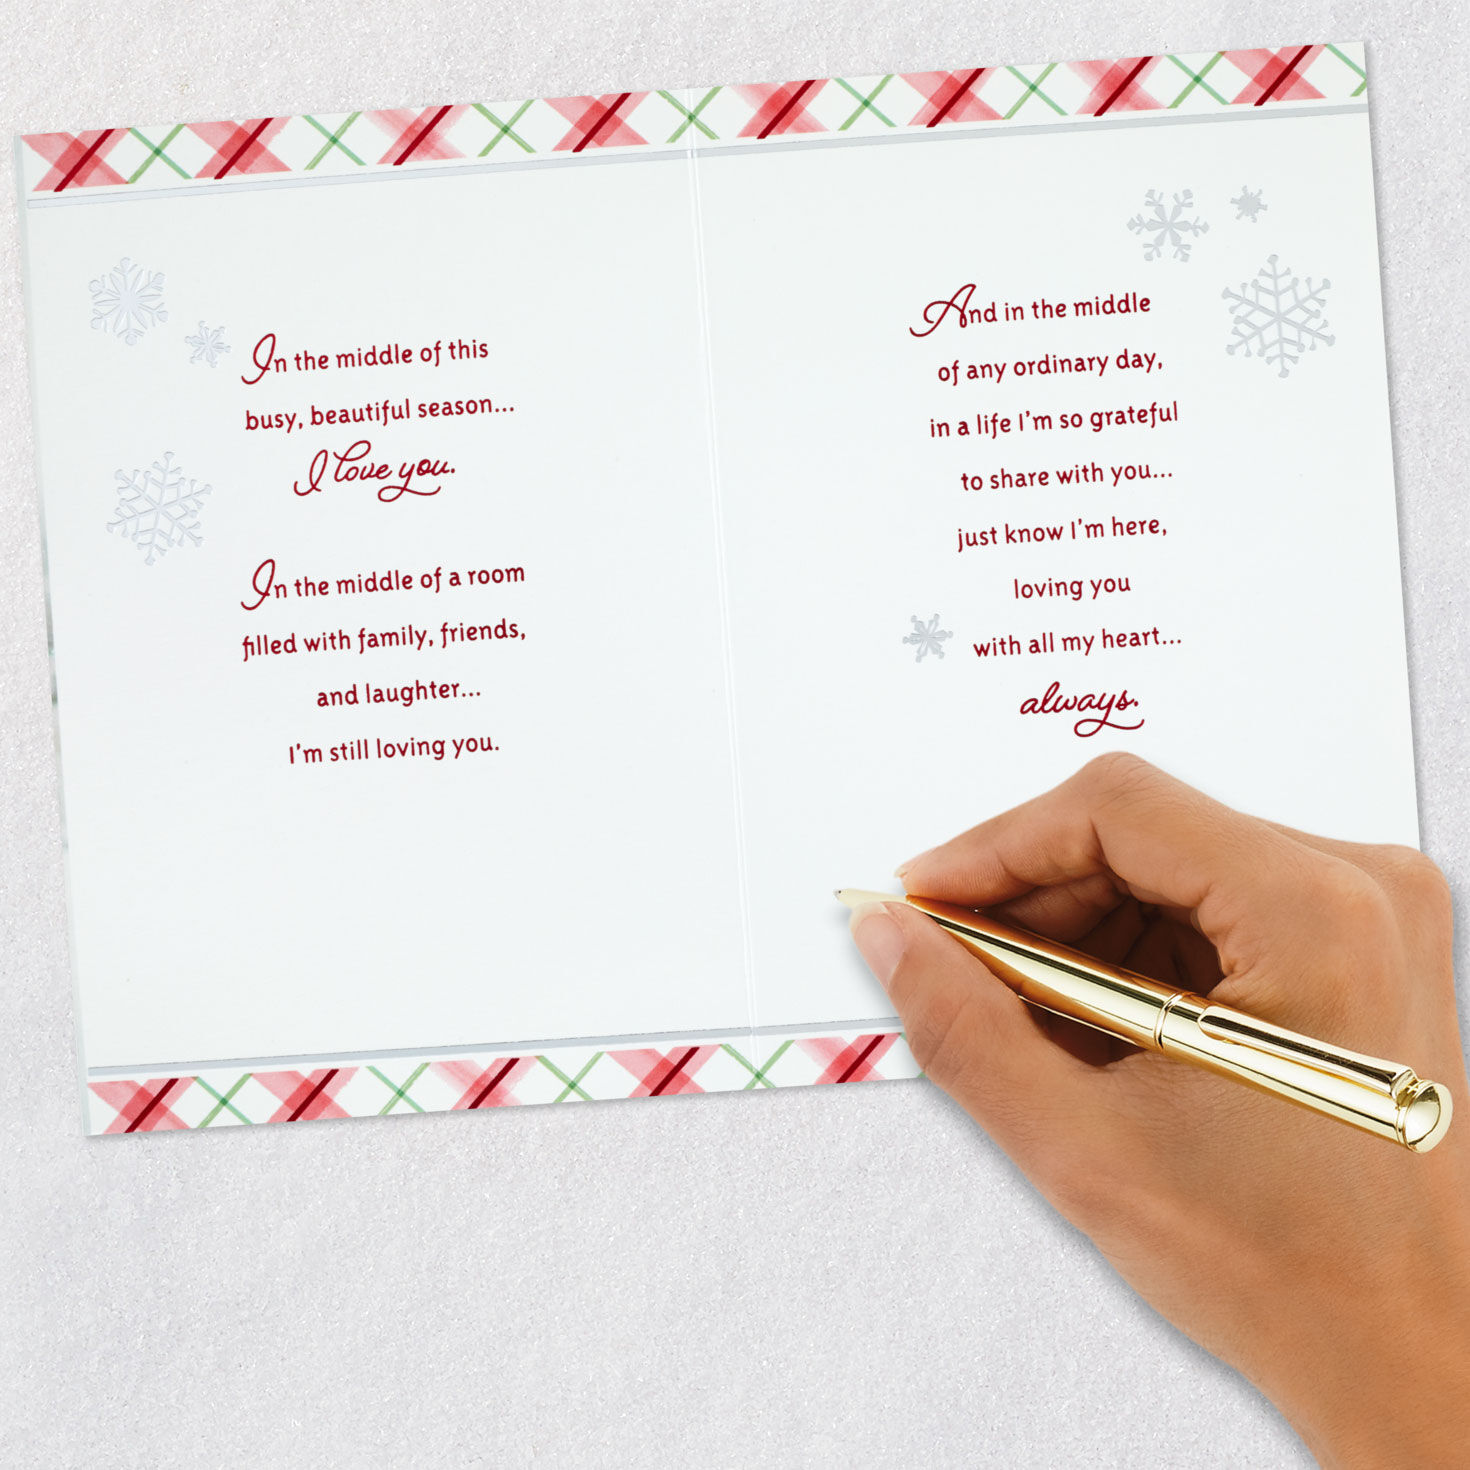 In the middle of this
busy, beautiful season...
I love you.
In the middle of a room
filled with family, friends,
and laughter...
I'm still loving you.
And in the middle
of any ordinary day,
in a life I'm so grateful
to share with you...
just know I'm here,
loving you
with all my heart...
always.